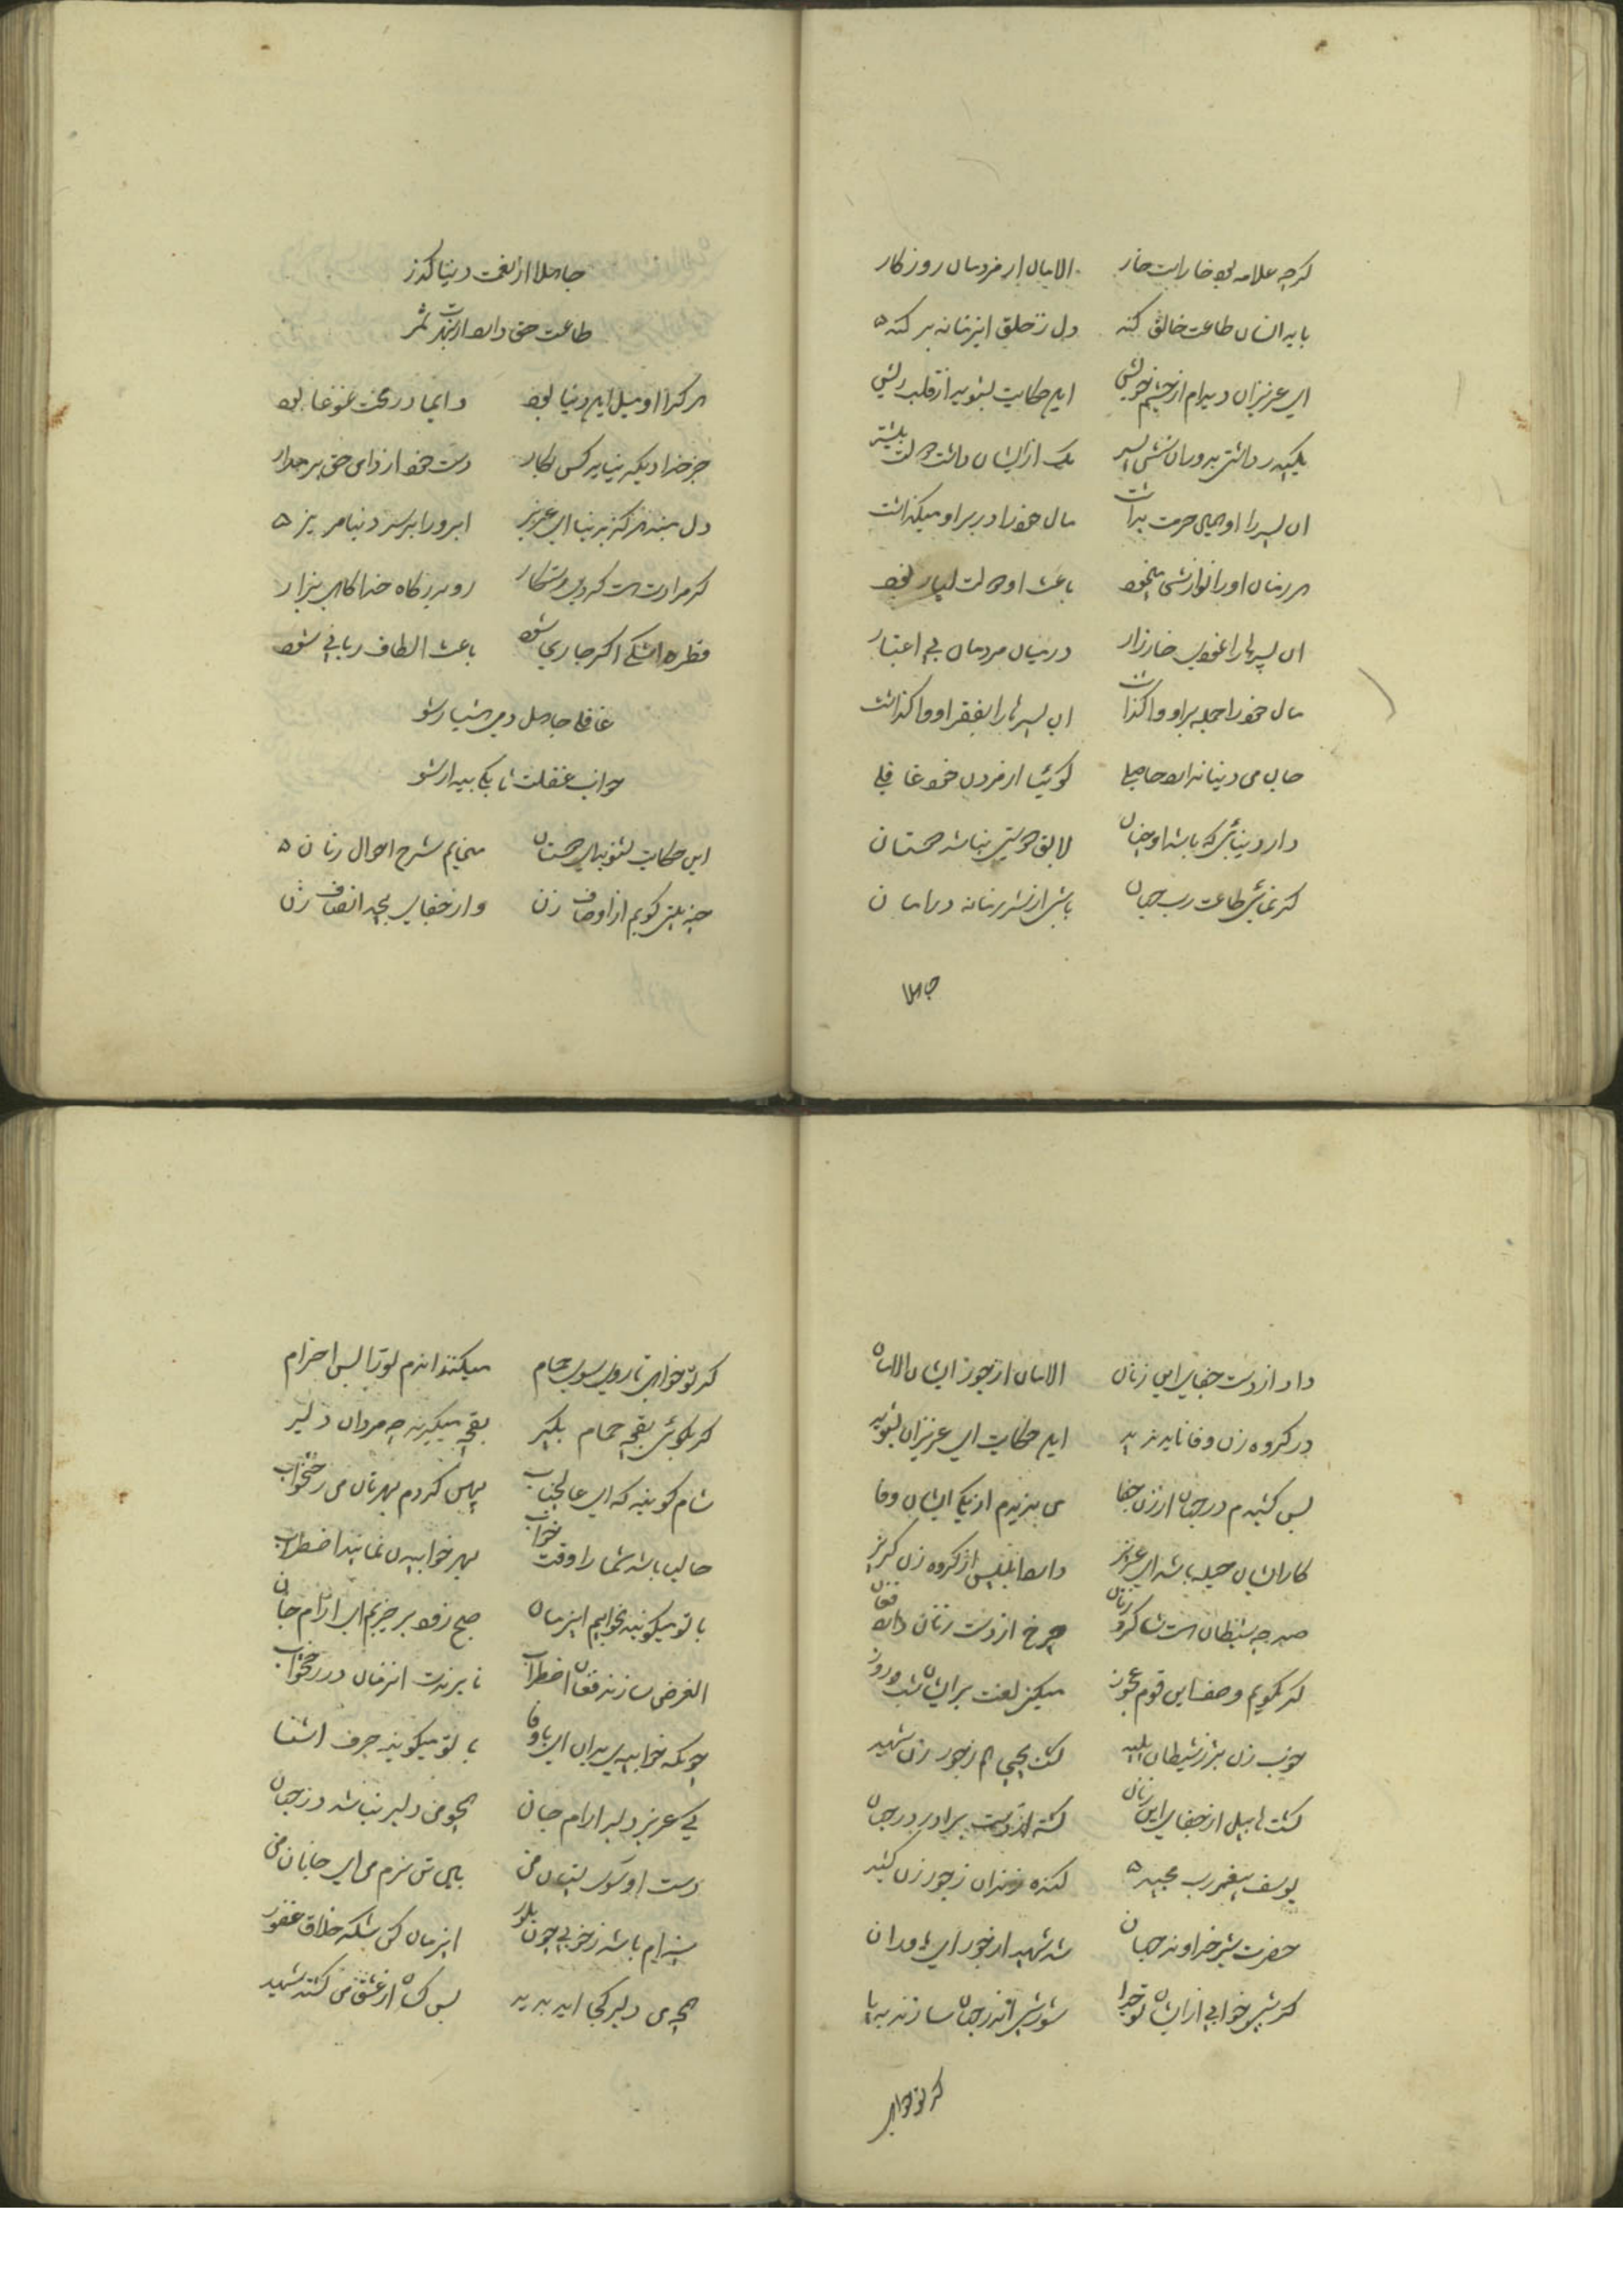 گرچه علامه بود خار است خار الامان از مردمان روزگار
باید انسان طاعت خالق کند دل ز خلق این زمانه بر کند
ای عزیزان دیده‌ام از چشم خویش این حکایت بشنوید از قلب ریش
یک پدر داشتی
ان پسر را او بسی حرمت بداشت مال خود را در بر او میگذاشت
هر زمان او را نوازش مینمود باعث او دولت بسیار بود
ان پسرها را نمودی خار زار در میان مردمان بی اعتبار
مال خود را جمله بر او واگذاشت ان پسرها را بفقر او واگذاشت
حال می دنیا ندارد حاصلی گوئیا از مردن خود غافلی
دار دنیائی که باشد او چنان لایق دوستی نباشد دوستان
گر نمائی طاعت رب جهان باشی از شر زمانه در امان
جاهلا
جاهلا از نعمت دنیا گذر
طاعت حق دارد از بهرت ثمر
هر کرا او میل این دنیا بود دایما در تحت غوغا بود
جز خدا دیگر نیاید کس بکار دست خود از دامن حق بر مدار
دل مبند هرگز بدنیا ای عزیز ابرو را بر سر دنیا مریز
گر مرادت هست گردی رستگار رو بدرگاه خدا گاهی بزار
قطره اشکی اگر جاری شود باعث الطاف ربانی شود
غافلی جاهل دمی هشیار شو
خواب غفلت تا بکی بیدار شو
این حکایت بشنوید ای دوستان مینمایم شرح احوال زنان
چند بیتی گویم از اوصاف زن وز جفای بیحد انصاف زن
داد از دست جفای این زنان الامان از جور ایشان الامان
در گروه زن وفا ناید پدید این حکایت ای عزیزان بشنوید
بس کشیدم در جهان از زن جفا می ندیدم از یکی ایشان وفا
کار ایشان حیله باشد ای عزیز دارد ابلیس از گروه زن گریز
صد چه شیطان است شاگرد زنان چرخ از دست زنان دارد فغان
گر بگویم وصف این قوم عجوز میکنی لعنت بر ایشان شب و روز
چونکه زن بدتر ز شیطان پلید گشت یحیی هم ز جور زن شهید
گشت هابیل از جفای این زنان کشته از دست برادر در جهان
یوسف پیغمبر رب مجید کند زندان ز جور زن کشید
حضرت شیر خداوند جهان شد شهید از جور ای
گر شبی خوابی از ایشان تو جدا شورشی اندر جهان سازند بپا
گر تو خواهی
گر تو خواهی تا روی سوی حمام میکنند اندم تو را بس احترام
گر بگوئی بقچه حمام بگیر بقچه میگیرند چه مردان دلیر
شام گویند که ای عالیجناب پهن کردم بهرتان من رختخواب
حالیا باشد شما را وقت خواب بهر خوابیدن نمائید اضطراب
با تو میگویند بخوابیم این زمان صبح زود برخیزیم ای ارام جان
الغرض سازند فغان اضطراب تا برندت انزمان در رختخواب
چونکه خوابیدی بدان ای باوفا با تو میگویند حرف اشنا
کی عزیز دلبر ارام جان همچو من دلبر نباشد در جهان
دست او سوی پستان من
سینه‌ام باشد ز خوبی چون بلور این زمان کن شکر خلاق غفور
همچو من دلبر کجا اید پدید بس کسان از عشق من گشته شهید